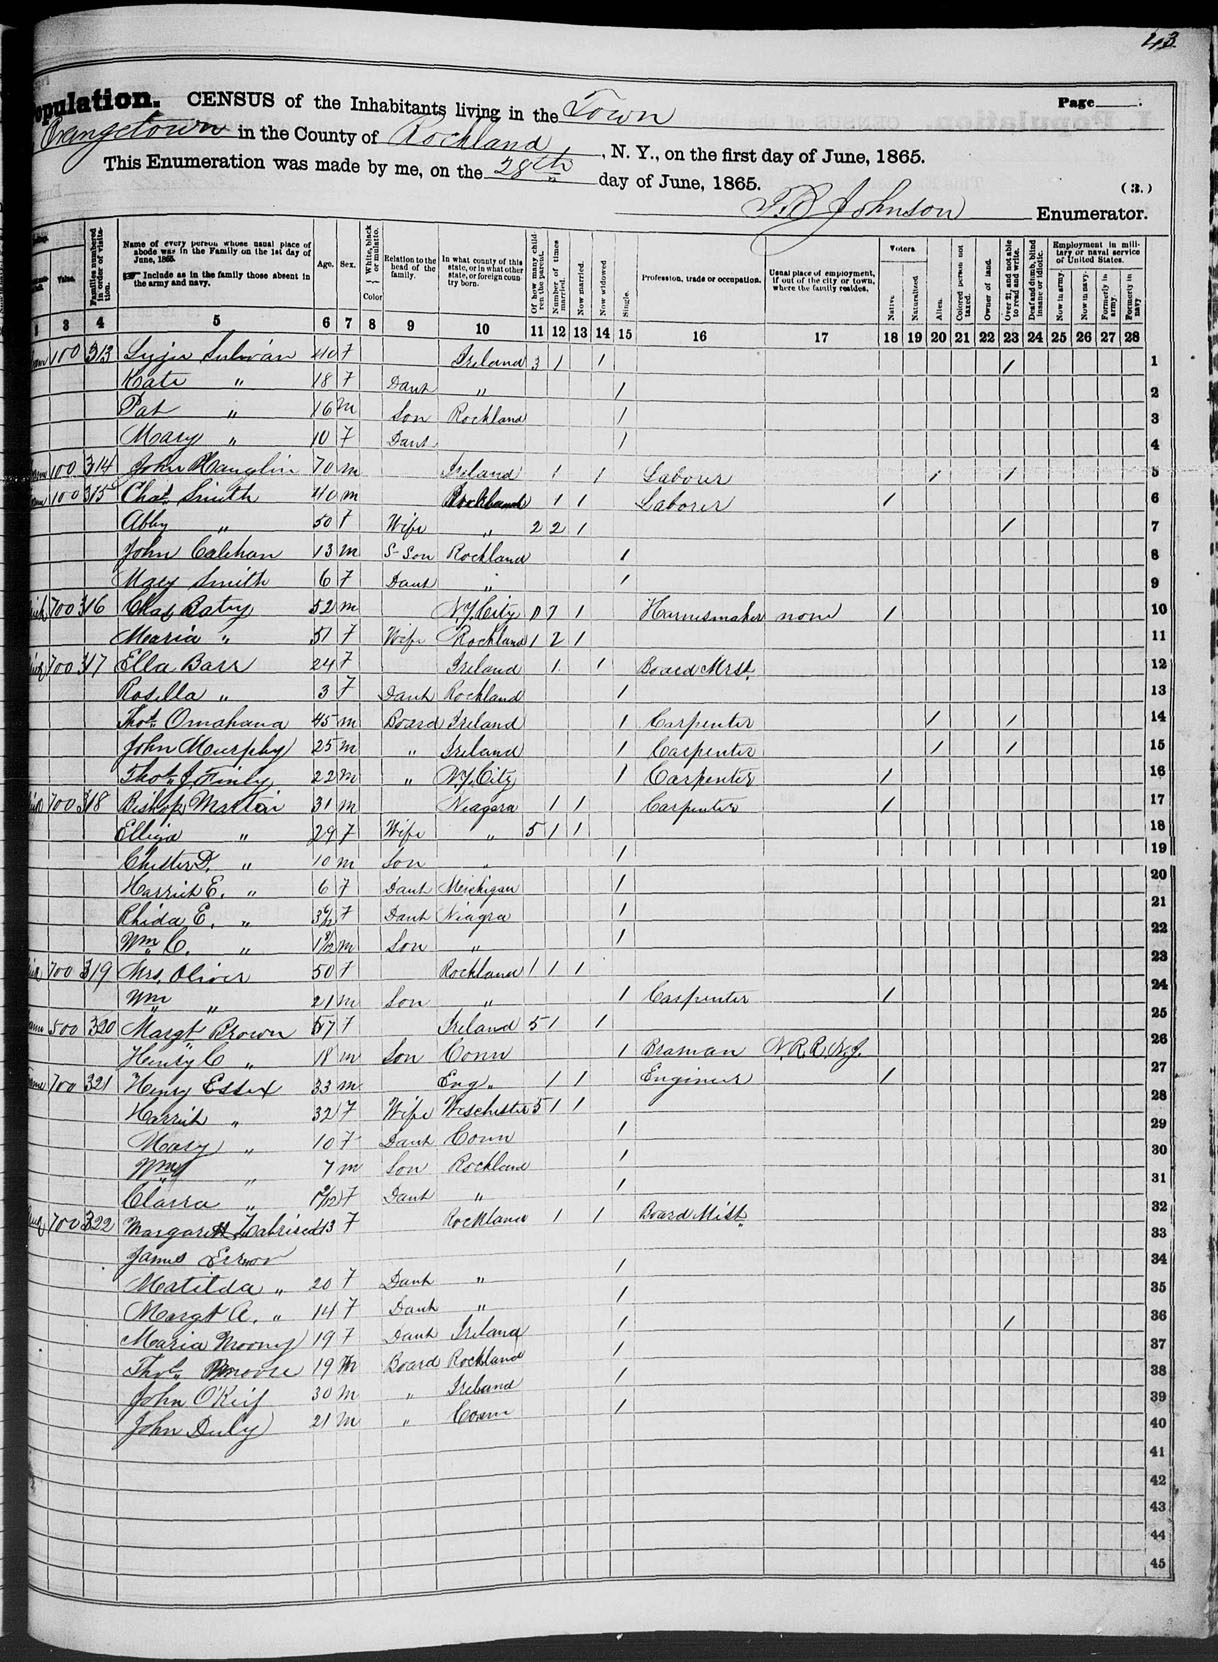 43
Population. CENSUS of the Inhabitants living in the Town Page
Orangetown in the County of Rockland, N. Y., on the first day of June, 1865.
This Enumeration was made by me, on the 28th day of June, 1865. (3.)
T. B. Johnson Enumerator.
Value. Families numbered in the order of visitation. Name of every person whose usual place of abode was in the Family on the 1st day of June, 1865. Include as in the family those absent in the army and navy. Age. Sex. White, black or mulatto. Color Relation to the head of the family. In what county of this state, or in what other state, or foreign country born. Of how many children the parent. Number of times married. Now married. Now widowed Single. Profession, trade or occupation. Usual place of employment, if out of the city or town, where the family resides. Voters. Native. Naturalized. Alien. Colored person not taxed. Owner of land. Over 21, and not able to read and write. Deaf and dumb, blind insane or idiotic. Employment in military or naval service of United States. Now in army. Now in navy. Formerly in army. Formerly in navy
3 4 5 6 7 8 9 10 11 12 13 14 15 16 17 18 19 20 21 22 23 24 25 26 27 28
100 313 Sulivan 40 F Ireland 3 1 1 / 1
Kate " 18 F Daut " 1 2
Pat " 16 m Son Rockland 1 3
Mary " 10 F Daut 1 4
100 314 John Hauglin 70 m Ireland 1 1 Labourer / / 5
100 315 Chas Smith 40 m Rockland 1 1 Laborer 1 6
Abby " 50 F Wife " 2 2 1 / 7
John Calehan 13 m S-Son Rockland 1 8
Mary Smith 6 F Daut " 1 9
700 316 Chas Batry 52 m N.Y. City 1 Harnismaker none 1 10
Maria " 51 F Wife Rockland 1 2 1 11
700 317 Ella Barr 24 F Ireland 1 1 Board Mrst. 12
Rosella " 3 F Daut Rockland 1 13
Thos Omahana 45 m Board Ireland 1 Carpenter / / 14
John Murphy 25 m " Ireland 1 Carpenter / / 15
Thos J. Finly 22 m " N.Y. City 1 Carpenter 1 16
700 318 Bishop Martin 31 m Niagara 1 1 Carpenter 1 17
" 29 F Wife " 5 1 1 18
Chester D. " 10 m Son " 1 19
Harriet E. " 6 F Daut Michigan 1 20
Rhida E. " 3 6/12 F Daut Niagra 1 21
Wm C. " 1 9/12 m Son " 1 22
700 319 Mrs. Oliver 50 F Rockland 1 1 1 23
Wm " 21 m Son " 1 Carpenter 1 24
500 320 Margt Brown 57 F Ireland 5 1 1 25
Henry C " 18 m Son Conn 1 Braman N.R.R. N.J. 26
700 321 Henry Essex 33 m Eng. 1 1 Engineer 1 27
Harriet " 32 F Wife Wechester 5 1 1 28
Mary " 10 F Daut Conn 1 29
Wm " 7 m Son Rockland 30
Clarra " F Daut " 1 31
700 322 Margaret F Rockland 1 1 Board Mist. 32
33
James 34
Matilda " 20 F Daut " 1 35
Margt A. " 14 F Daut " 1 36
Maria Moony 19 F Daut Ireland 1 / 37
Thos Moore 19 m Board Rockland 1 38
John O'Keif 30 m " Ireland 1 39
John Duly 21 m " Conn 1 40
41
42
43
44
45